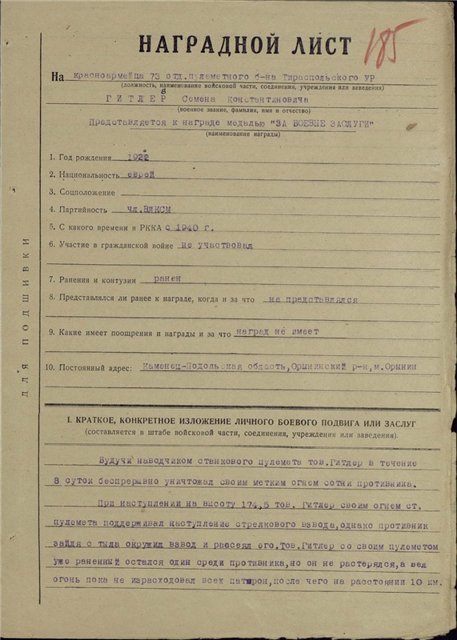 185
НАГРАДНОЙ ЛИСТ
На Красноармейца 73 отд.пулеметного б-на Тираспольского УР
(должность, наименование войсковой части, соединения, учреждения или заведения)
ГИТЛЕР Семена Константиновича
(военное звание, фамилия, имя и отчество)
Представляется к награде медалью "ЗА БОЕВЫЕ ЗАСЛУГИ"
(наименование награды)
1. Год рождения 1922
2. Национальность еврей
3. Соцположение
4. Партийность чл.ВЛКСМ
5. С какого времени в РККА с 1940 г.
6. Участие в гражданской войне не участвовал
7. Ранения и контузии ранен
8. Представлялся ли ранее к награде, когда и за что не представлялся
9. Какие имеет поощрения и награды и за что наград не имеет
10. Постоянный адрес: Каменец-Подольская область, Орынинский р-н, м.Орынин
ДЛЯ ПОДШИВКИ
I. КРАТКОЕ, КОНКРЕТНОЕ ИЗЛОЖЕНИЕ ЛИЧНОГО БОЕВОГО ПОДВИГА ИЛИ ЗАСЛУГ
(составляется в штабе войсковой части, соединения, учреждения или заведения).
Будучи наводчиком станкового пулемета тов.Гитлер в течение
8 суток беспрерывно уничтожал своим метким огнем сотни противника.
При наступлении на высоту 174,5 тов. Гитлер своим огнем ст.
пулемета поддерживал наступление стрелкового взвода, однако противник
зайдя с тыла окружил взвод и рассеял его. Тов.Гитлер со своим пулеметом
уже раненный остался один среди противника, но он не растерялся, а вел
огонь пока не израсходовал всех патырон, после чего на расстоянии 10 км.